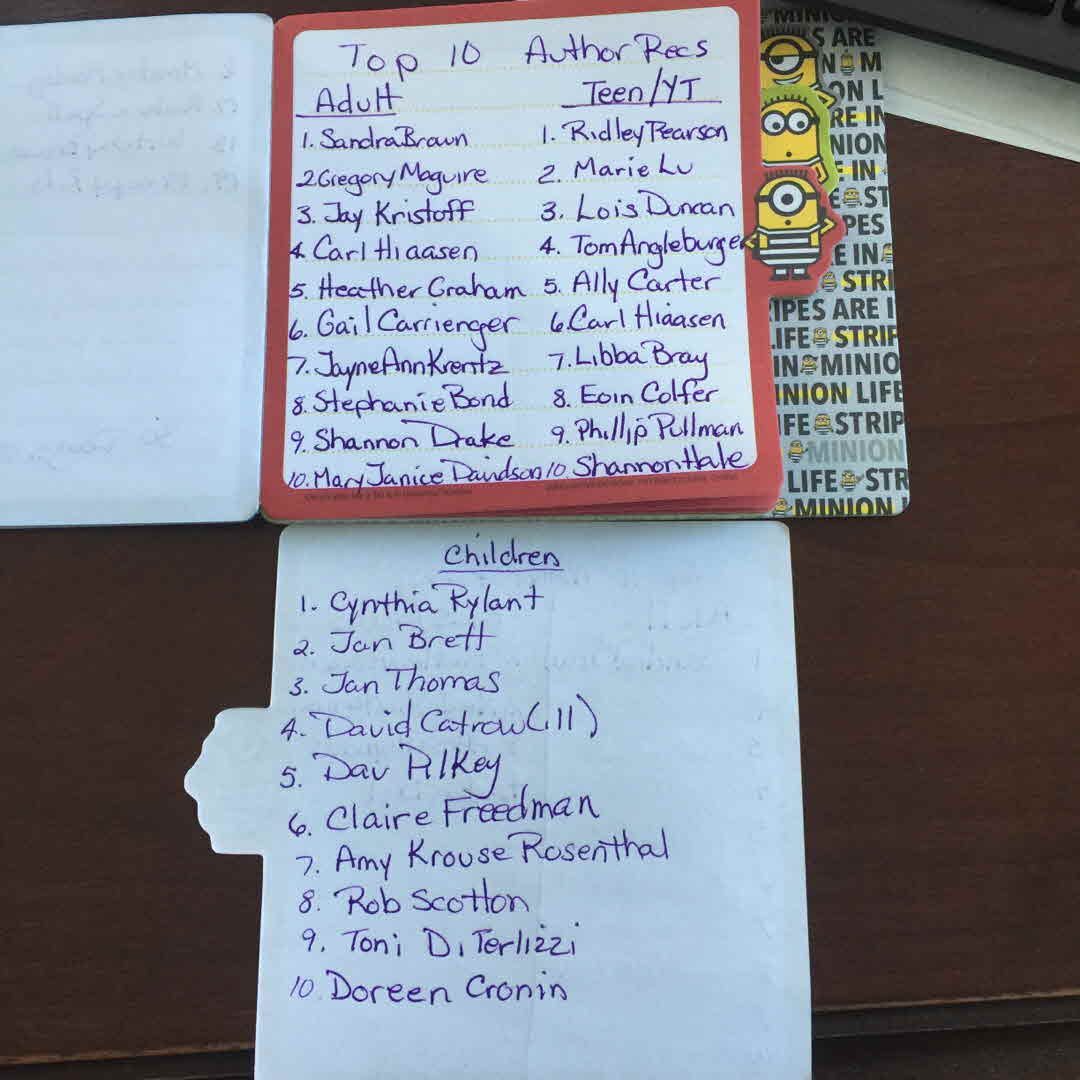 Top 10 Author Recs
Adult
1. Sandra Brown
2. Gregory Maguire
3. Jay Kristoff
4. Carl Hiaasen
5. Heather Graham
6. Gail Carrienger
7. Jayne Ann Krentz
8. Stephanie Bond
9. Shannon Drake
10. Mary Janice Davidson
Teen/YT
1. Ridley Pearson
2. Marie Lu
3. Lois Duncan
4. Tom Angleburger
5. Ally Carter
6. Carl Hiaasen
7. Libba Bray
8. Eoin Colfer
9. Phillip Pullman
10 Shannon Hale
Children
1. Cynthia Rylant
2. Jan Brett
3. Jan Thomas
4. David Catrow (ill)
5. Dav Pilkey
6. Claire Freedman
7. Amy Krouse Rosenthal
8. Rob Scotton
9. Toni DiTerlizzi
10. Doreen Cronin
MINIO
S ARE
N M
ON L
RE IN
NION
E IN
E ST
PES
E IN
STRI
IPES ARE I
LIFE STRIP
IN MINIO
INION LIFE
IFE STRIP
MINION
LIFE STR
MINION